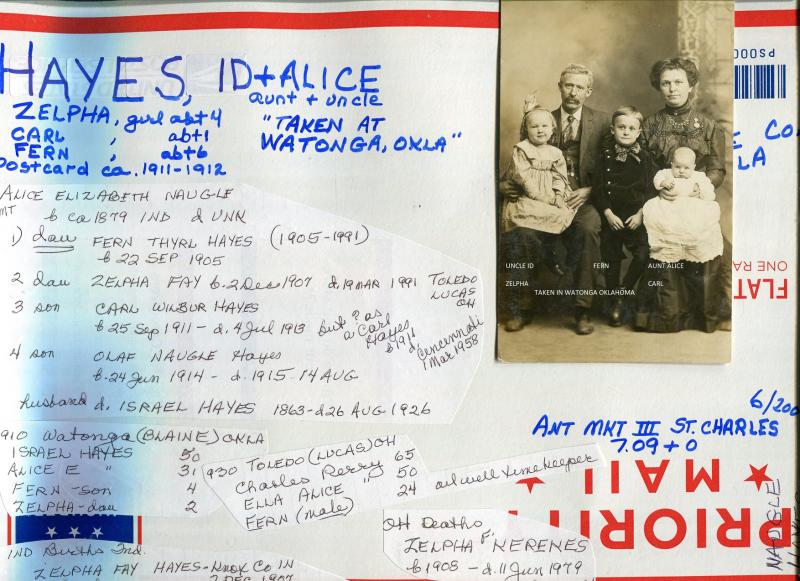 HAYES, ID+ALICE
aunt + uncle
ZELPHA, girl abt 4
CARL , abt 1
FERN , abt 6
postcard ca. 1911-1912
"TAKEN AT
WATONGA, OKLA"
ALICE ELIZABETH NAUGLE
b ca 1879 IND d UNK
1) dau FERN THYRL HAYES (1905-1991)
b 22 SEP 1905
2 dau ZELPHA FAY b. 2 Dec 1907 d. 19 MAR 1991 TOLEDO
LUCAS
OH
3 son CARL WILBUR HAYES
b 25 Sep 1911 - d. 4 Jul 1913 but ? as
a Carl
Hayes
b 1911
d. Cincinnati
1 Mar 1958
4 son OLAF NAUGLE Hayes
b. 24 Jun 1914 - d. 1915 14 AUG
husband d. ISRAEL HAYES 1863-d 26 AUG 1926
910 Watonga (BLAINE) OKLA
ISRAEL HAYES 50
ALICE E " 31
FERN - son 4
ZELPHA - dau 2
930 TOLEDO (LUCAS) OH
Charles Perry 65
ELLA ALICE " 50
FERN (male) 24 oil well timekeeper
OH Deaths
ZELPHA F. NERENES
b 1908 - d. 11 Jun 1979
IND Births Ind.
ZELPHA FAY HAYES - Knox Co IN
2 DEC 1907
UNCLE ID FERN AUNT ALICE
ZELPHA CARL
TAKEN IN WATONGA OKLAHOMA
PS000
CO
LA
FLAT
ONE RA
6/200
ANT MKT III ST. CHARLES
7.09 + 0
PRIORIT
MAIL
NAUGLE